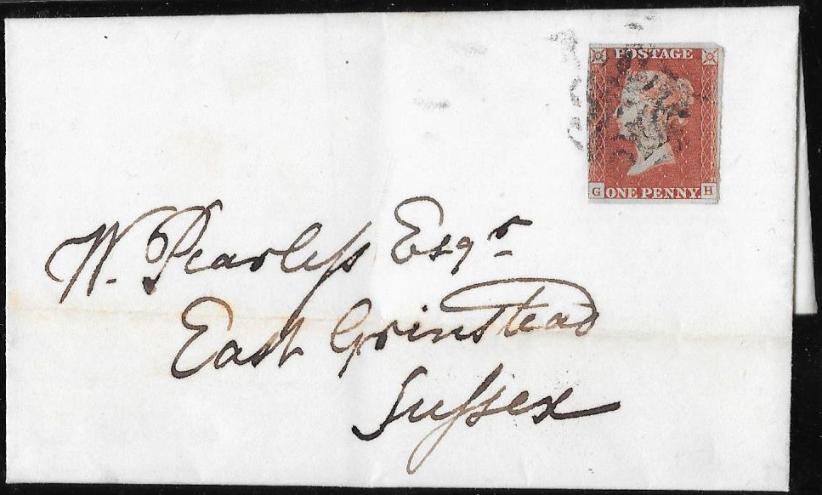 POSTAGE
G ONE PENNY. H
W. Pearless Esqr.
East Grinstead
Sussex